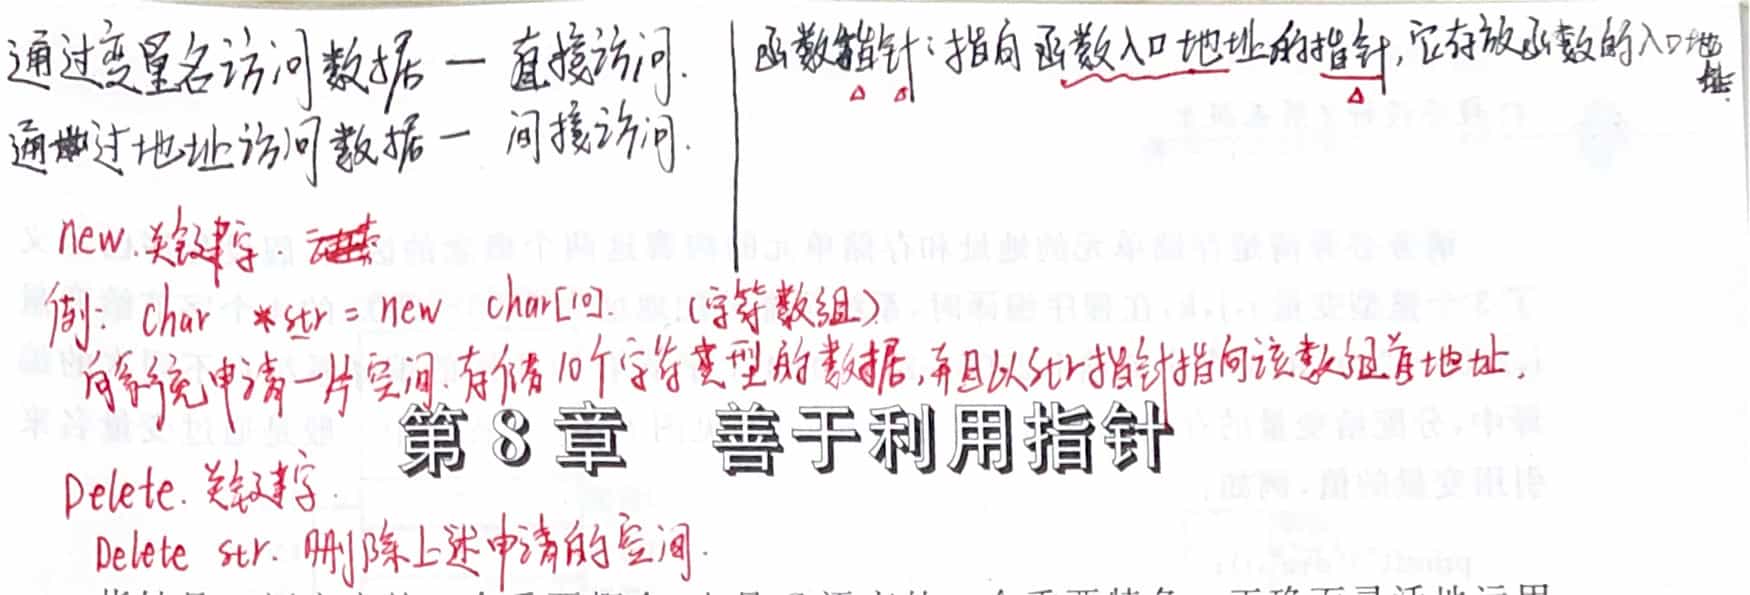 通过变量名访问数据 — 直接访问.
通过地址访问数据 — 间接访问.
函数指针：指向函数入口地址的指针, 它存放函数的入口地址.
new. 关键字.
例: char *str = new char[10]. (字符数组)
向系统申请一片空间.存储10个字符类型的数据,并且以str指针指向该数组首地址.
第8章 善于利用指针
Delete. 关键字.
Delete str. 删除上述申请的空间.